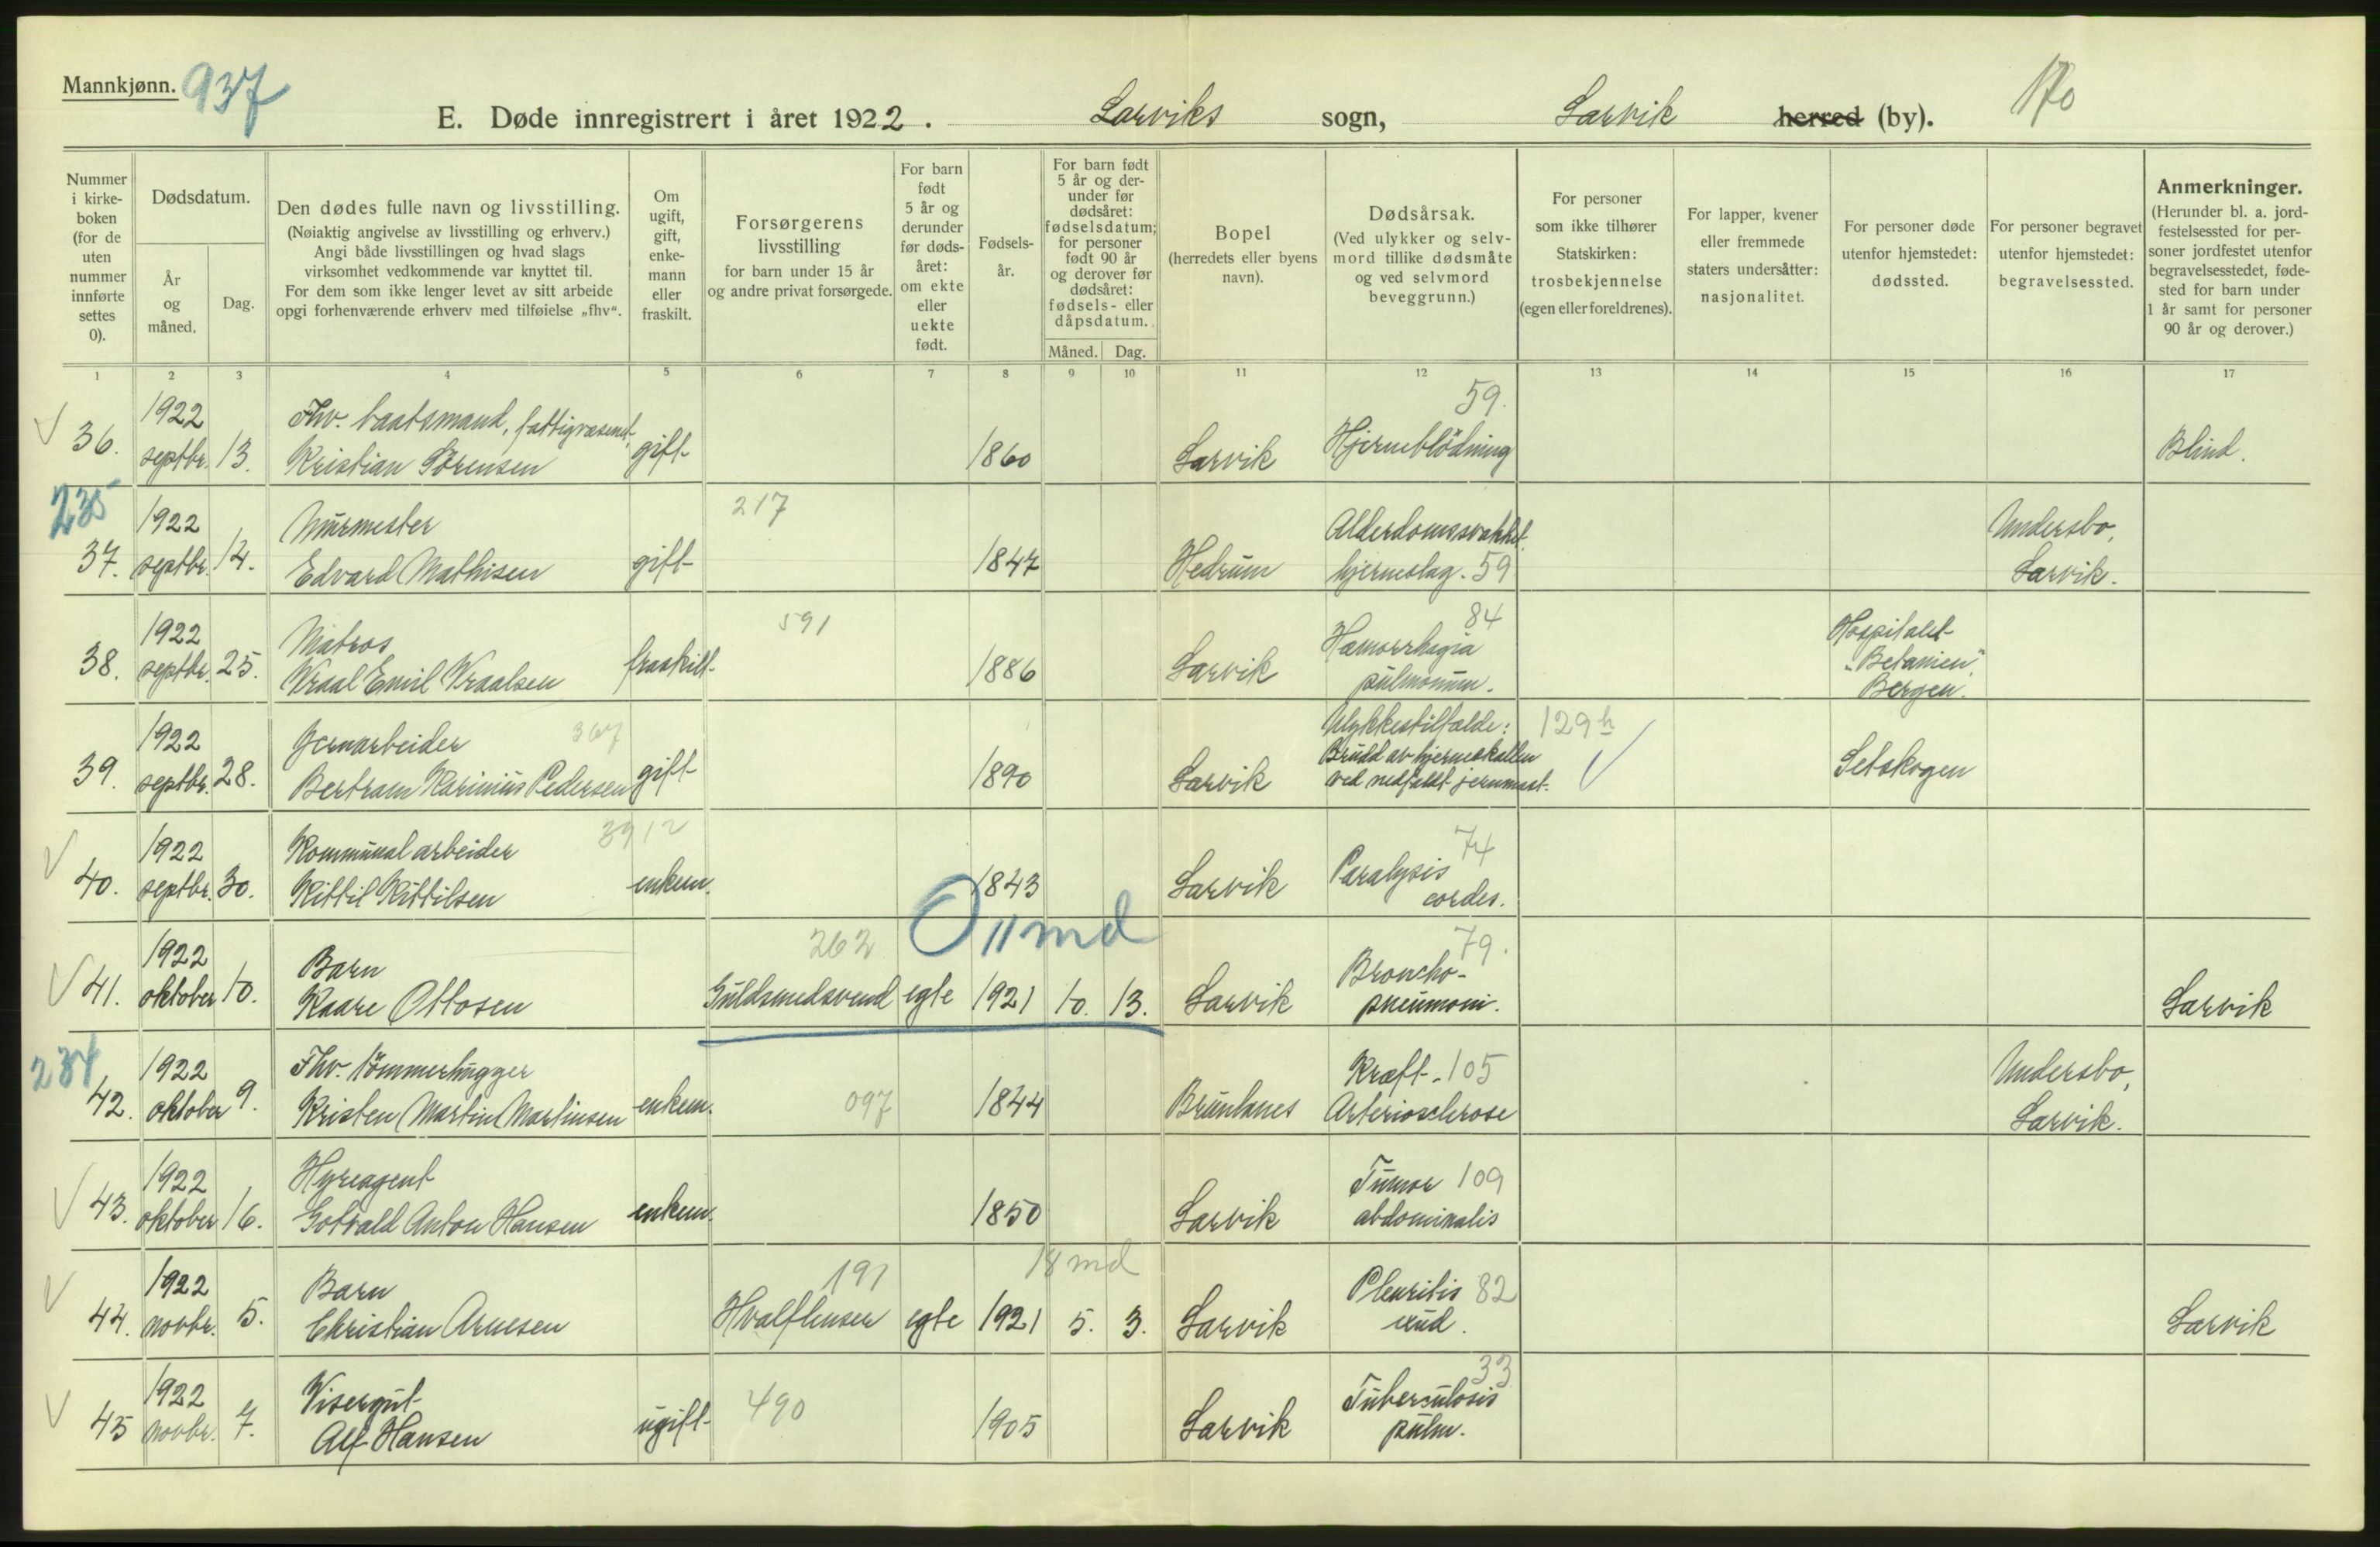 Mannkjønn. 937
E. Døde innregistrert i året 1922. Larviks sogn, Larvik herred (by). 170
Nummer i kirkeboken (for de uten nummer innførte settes 0).
Dødsdatum.
År og måned.
Dag.
Den dødes fulle navn og livsstilling.
(Nøiaktig angivelse av livsstilling og erhverv.)
Angi både livsstillingen og hvad slags
virksomhet vedkommende var knyttet til.
For dem som ikke lenger levet av sitt arbeide
opgi forhenværende erhverv med tilføielse „fhv“.
Om ugift, gift, enkemann eller fraskilt.
Forsørgerens livsstilling
for barn under 15 år
og andre privat forsørgede.
For barn født 5 år og derunder før dødsåret: om ekte eller uekte født.
Fødselsår.
For barn født 5 år og derunder før dødsåret: fødselsdatum; for personer født 90 år og derover før dødsåret: fødsels- eller dåpsdatum.
Måned. Dag.
Bopel
(herredets eller byens navn).
Dødsårsak.
(Ved ulykker og selvmord tillike dødsmåte og ved selvmord beveggrunn.)
For personer som ikke tilhører Statskirken:
trosbekjennelse
(egen eller foreldrenes).
For lapper, kvener eller fremmede staters undersåtter:
nasjonalitet.
For personer døde utenfor hjemstedet:
dødssted.
For personer begravet utenfor hjemstedet:
begravelsessted.
Anmerkninger.
(Herunder bl. a. jordfestelsessted for personer jordfestet utenfor begravelsesstedet, fødested for barn under 1 år samt for personer 90 år og derover.)
1 2 3 4 5 6 7 8 9 10 11 12 13 14 15 16 17
1922 Fhv. baatsmand, fattigvæsenet, 59.
36. septbr. 13. Kristian Sörensen gift 1860 Larvik Hjerneblödning Blind.
235 1922 Murmester 217 Alderdomssvakhet, Undersbo,
37. septbr. 14. Edvard Mathisen gift 1847 Hedrum hjerneslag. 59 Larvik.
1922 Matros 591 84 Hæmorrhagia Hospitalet
38. septbr. 25. Vraal Emil Vraalsen fraskilt 1886 Larvik pulmonum. „Betanien“ Bergen.
1922 Jernarbeider 367 Ulykkestilfælde: 129h
39. septbr. 28. Bertram Karinius Pedersen gift 1890 Larvik Brudd av hjerneskallen ved nedfaldt jernmast. Setskogen
1922 Kommunalarbeider 3912 74
40. septbr. 30. Kittil Kittilsen enkem. 1843 Larvik Paralysis cordes.
0 11 md
1922 Barn 262 79. Broncho-
41. oktober 10. Kaare Ottosen Guldsmedsvend egte 1921 10. 13. Larvik pneumoni. Larvik
234 1922 Fhv. tömmerhugger Kræft. 105 Undersbo,
42. oktober 9. Kristen Martin Martinsen enkem. 097 1844 Brunlanes Arteriosclerose Larvik.
1922 Hyreagent Tumor 109
43. oktober 16. Gotvald Anton Hansen enkem. 1850 Larvik abdominalis
1922 Barn 191 18 md Pleuritis 82
44. novbr. 5. Christian Arnesen Hvalflenser egte 1921 5. 3. Larvik exud. Larvik
1922 Visergut 490 33 Tuberculosis
45 novbr. 7. Alf Hansen ugift 1905 Larvik pulm.